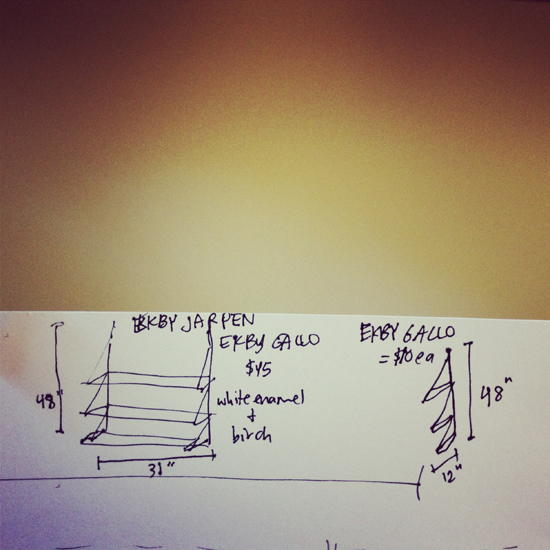 EKBY JARPEN
EKBY GALLO
$45
white enamel
+
birch
48"
31"
EKBY GALLO
= $10 ea
48"
12"